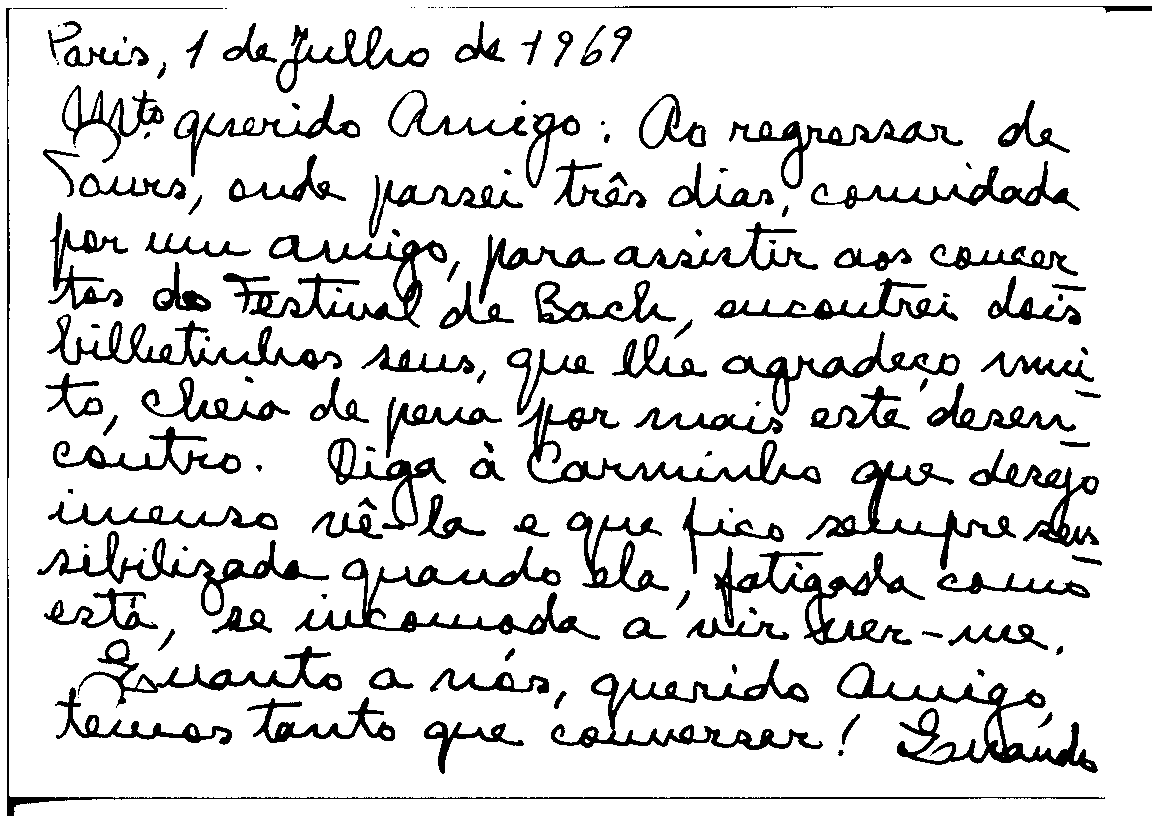 Paris, 1 de Julho de 1969
Mto. querido Amigo: Ao regressar de
Tours, onde passei três dias, convidada
por um amigo, para assistir aos concer
tos do Festival de Bach, encontrei dois
bilhetinhos seus, que lhe agradeço mui
to, cheia de pena por mais este desen
contro. Diga à Carminho que desejo
imenso vê-la e que fico sempre sen
sibilizada quando ela, fatigada como
está, se incomoda a vir ver-me.
Quanto a nós, querido Amigo,
temos tanto que conversar! Quando